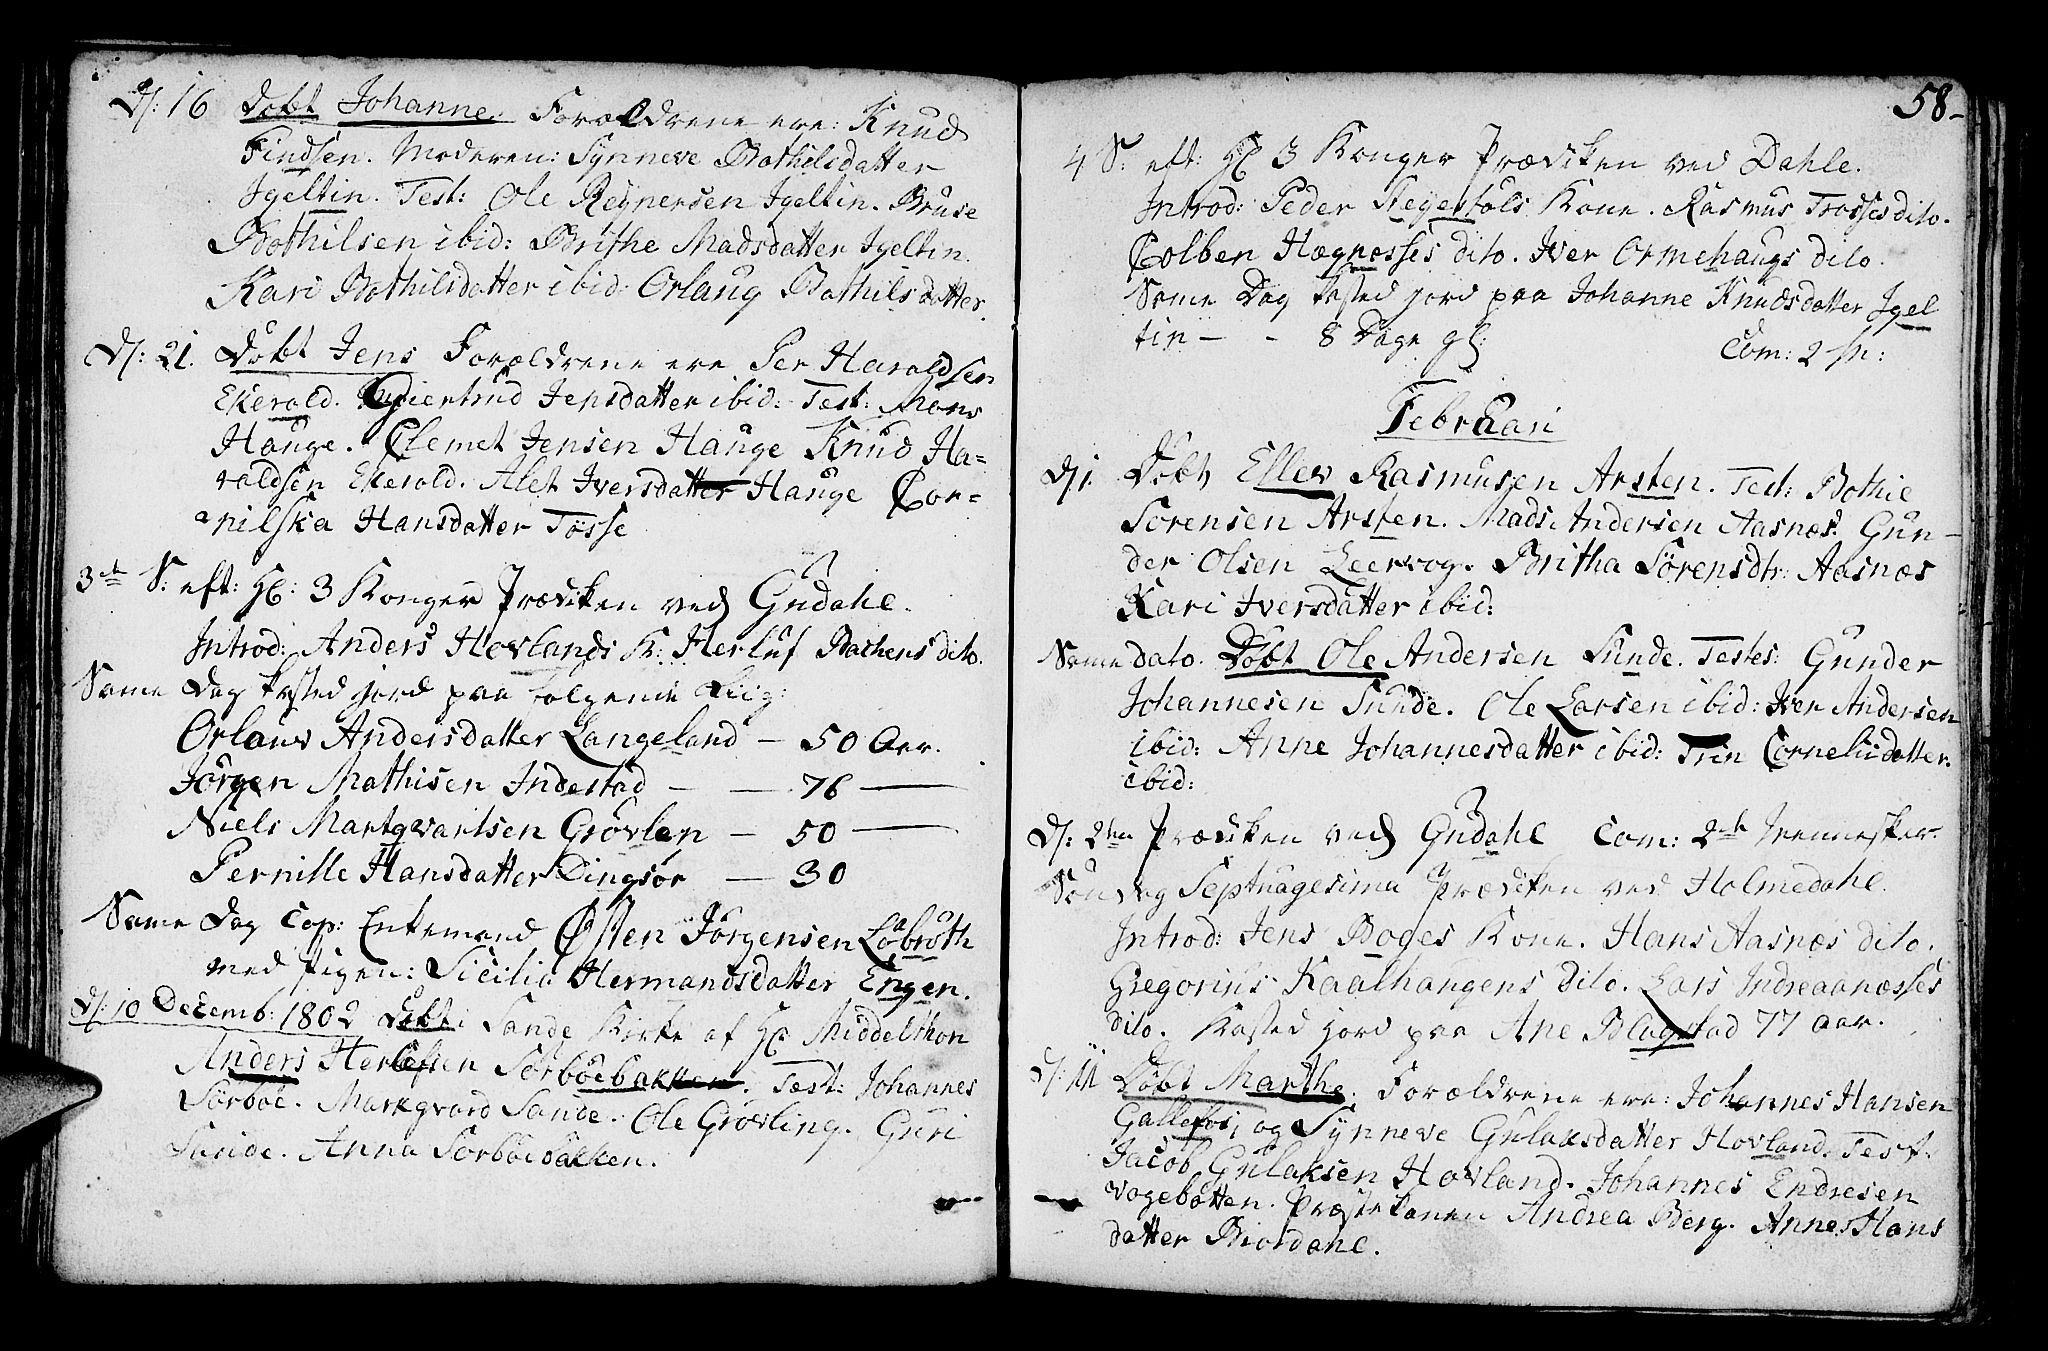 D/: 16 Döbt Johanne. Forældrene ere: Knud
Findsen. Moderen: Synneve Bothilsdatter
Igeltin. Test: Ole Reynersen Igeltin. Bruse
Bothilsen ibid: Brithe Madsdatter Igeltin.
Kari Bothilsdatter ibid: Orlaug Bothils datter.
D/: 21. Döbt Jens Forældrene ere Per Haraldsen
Ekerold. Giertrud Jensdatter ibid: Test: Mons
Hauge. Clemet Jensen Hauge Knud Ha=
raldsen Ekerold. Alet Iversdatter Hauge Cor=
nilska Hansdatter Tösse
3de S: eft: H: 3 Konger Prædiken ved Gudahl.
Introd: Anders Hovlands K: Herluf Bachens dito.
Same Dag kasted jord paa følgende Liig:
Orlaus Andersdatter Langeland — 50 Aar.
Jörgen Mathisen Indestad — — 76 —
Niels Martqvartsen Grövlen — 50 —
Pernille Hansdatter Dingsör — 30
Same Dag Cop: Enkemand Østen Jörgensen Laabroth
med Pigen: Sicilia Hermandsdatter Engen.
D/: 10 Decemb: 1802 Döbt i Sande Kirke af Hr Middelthon
Anders Herlefsen Sörböebakken. Test: Johannes
Sörböe. Markqvard Sande. Ole Grövling. Guri
Sande. Anna Sörböebakken.
58-
4 S: eft: H 3 Konger Prædiken ved Dahle.
Introd: Peder Tiegestöls Kone. Rasmus Trosses dito.
Colben Hægnæsses dito. Iver Ormehaugs dito.
Same Dag kasted jord paa Johanne Knudsdatter Igel
tin — - 8 Dage gl: Com: 2 sn:
Februari
D/ 1 Döbt Ellev Rasmusen Arsten. Test: Bothie
Sörensen Arsten. Mads Andersen Aasnæs. Gun-
der Olsen Leervog. Britha Sörensdtr: Aasnæs
Kari Iversdatter ibid:
Same dato. Döbt Ole Andersen Sunde. Testes: Gunder
Johannesen Sunde. Ole Larsen ibid: Iver Andersen
ibid: Anne Johannesdatter ibid: Trin Cornelisdatter.
ibid:
D/: 2den Prædiken ved Gudahl Com: 2de Mennesker.
Söndag Septuagesima Prædiken ved Holmedahl.
Introd: Jens Boges Kone. Hans Aasnæs dito.
Gregorius Kaalhaugens dito. Lars Indreaanæsses
dito. Kasted jord paa Ane Blagestad 77 Aar.
D/: 11 Döbt Marthe. Forældrene ere: Johannes Hansen
Galleföi, og Synneve Gulaksdatter Hovland. Test.
Jacob Gulaksen Hovland. Johannes Endresen
Vogebotten. Præstekonen Andrea Berg. Anne Hans
datter Biordahl.